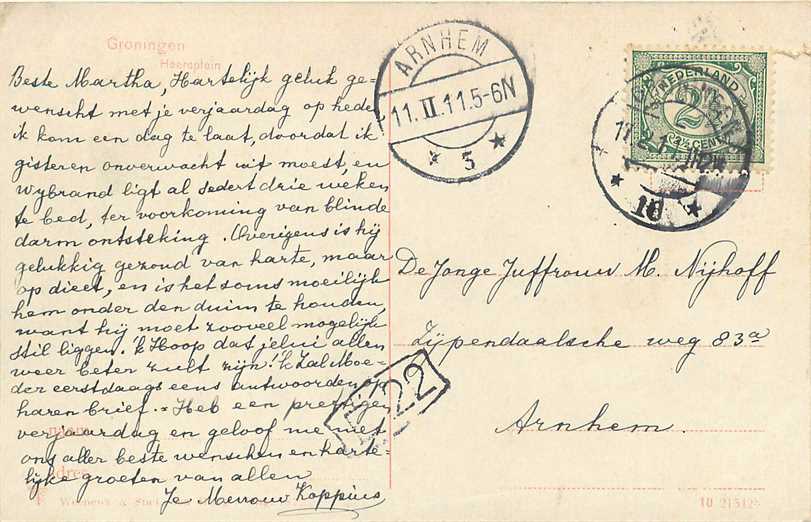 Groningen
Heereplein
Beste Martha, Hartelijk geluk ge=
wenscht met je verjaardag op heden
ik kom een dag te laat, doordat ik
gisteren onverwacht uit moest, en
Wybrand ligt al sedert drie weken
te bed, ter voorkoming van blinde
darm ontsteking. Overigens is hij
gelukkig gezond van harte, maar
op dieet, en is het soms moeilijk
hem onder den duim te houden,
want hij moet zooveel mogelijk
stil liggen. 'k Hoop dat jelui allen
weer beter zult zijn! 'k Zal Moe=
der eerstdaags eens antwoorden op
haren brief. = Heb een prettigen
verjaardag en geloof me met
ons aller beste wenschen en harte=
lijke groeten van allen
Je Mevrouw Koppius
ARNHEM
11.II.11.5-6N
5
NEDERLAND
2½
CENT
10
De Jonge Juffrouw M. Nijhoff
Zijpendaalsche weg 83a
Arnhem.
22
10 21512